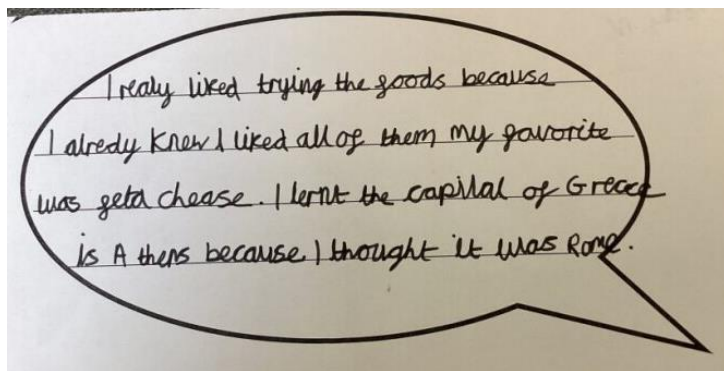 I realy liked trying the foods because
I alredy knew I liked all of them my favorite
was feta chease. I lernt the capital of Greece
is Athens because I thought it was Rome.